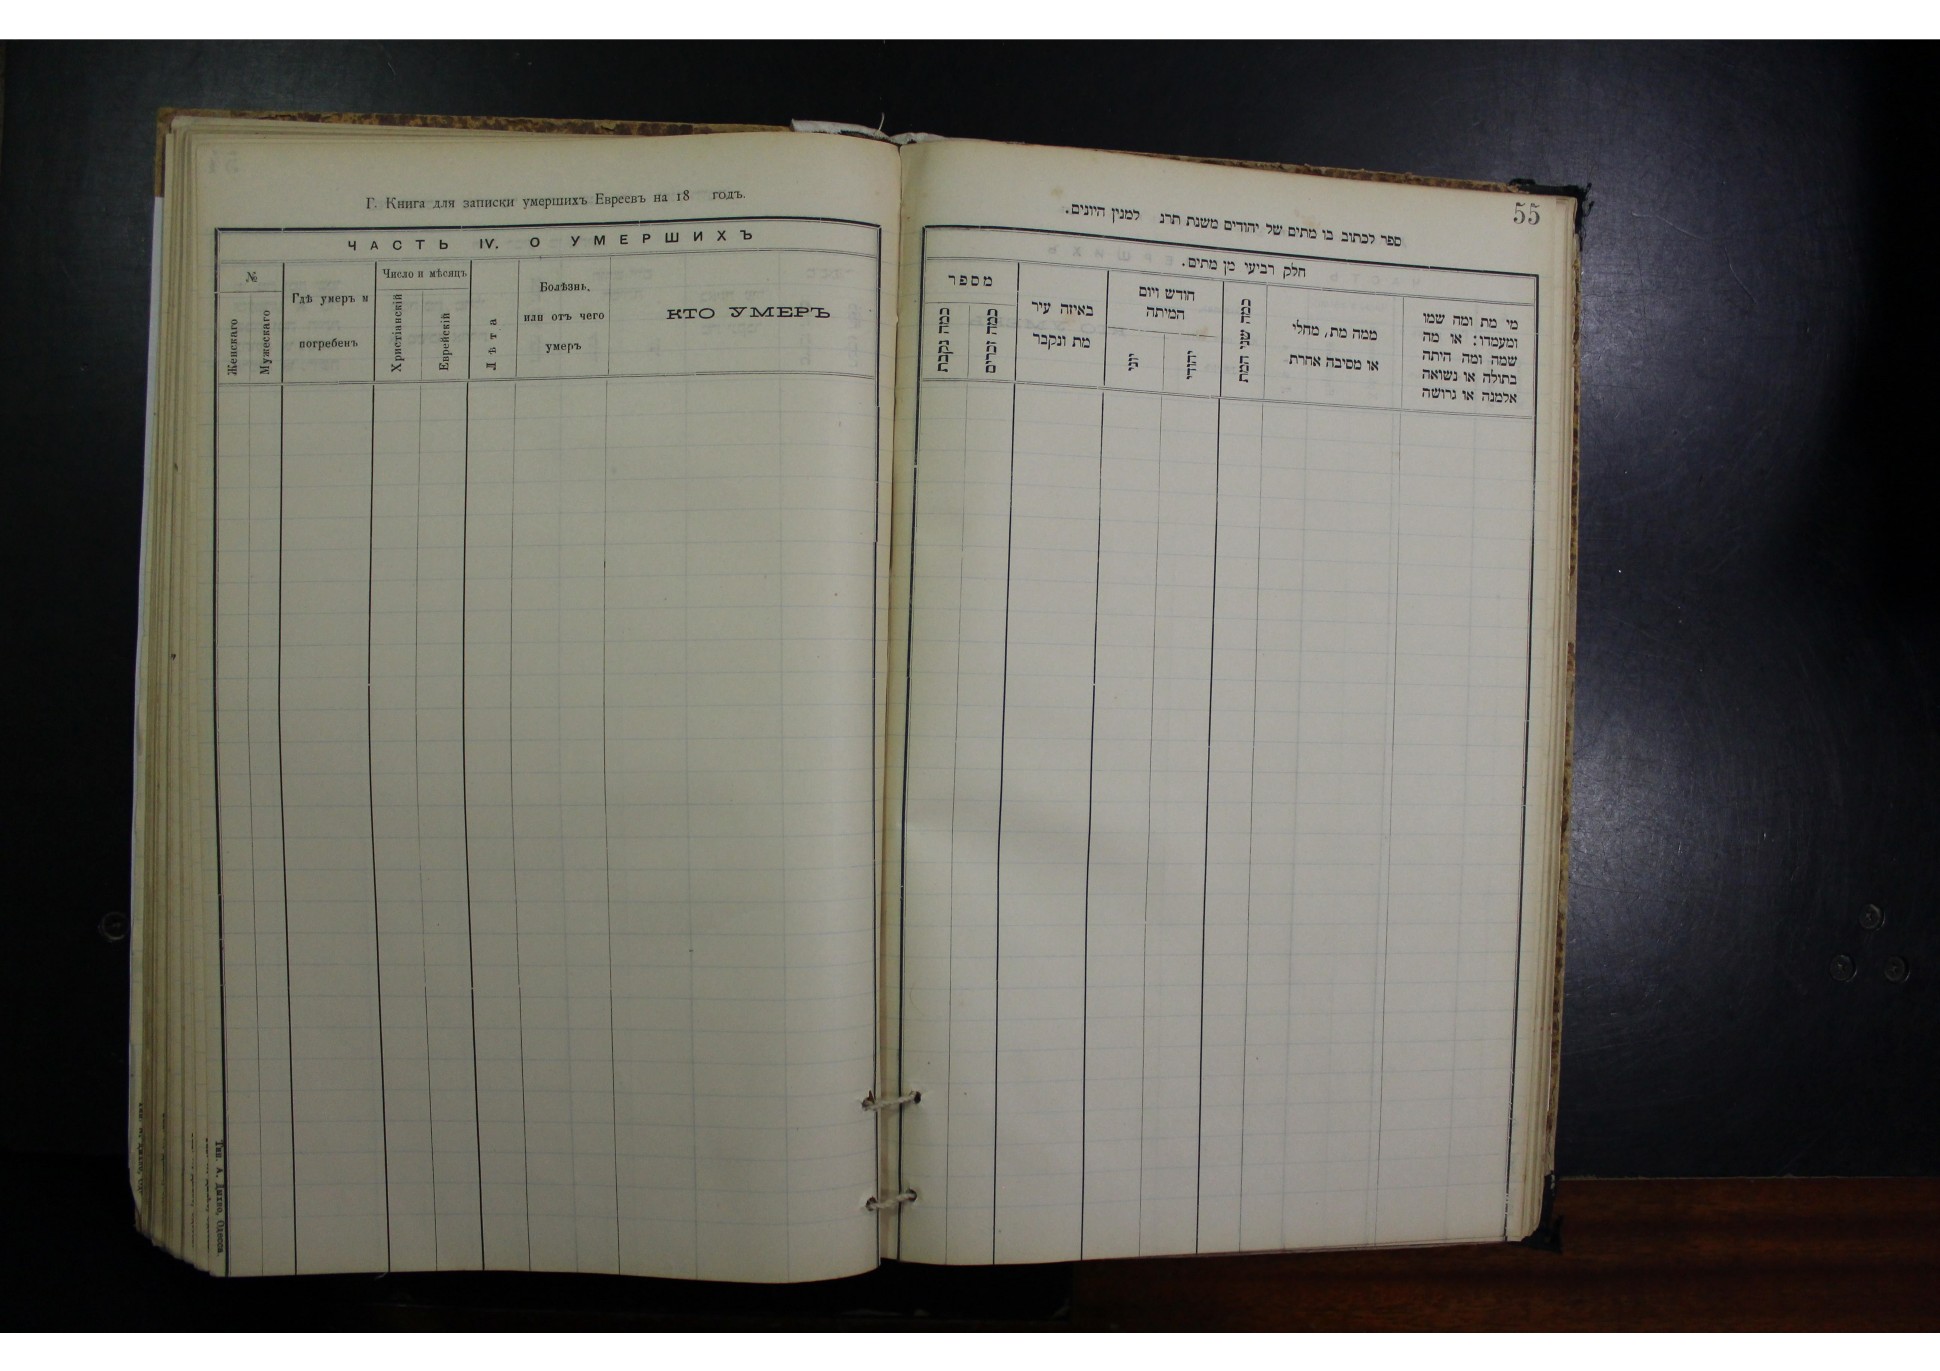 Г. Книга для записки умершихъ Евреевъ на 18 годъ.
ЧАСТЬ IV. О УМЕРШИХЪ
№
Женскаго
Мужескаго
Гдѣ умеръ и
погребенъ
Число и мѣсяцъ
Христіанскій
Еврейскій
Лѣта
Болѣзнь,
или отъ чего
умеръ
КТО УМЕРЪ
Тип. А. Дыхно, Одесса.
55
ספר לכתוב בו מתים של יהודים משנת תרנ למנין היונים.
חלק רביעי מן מתים.
מספר
כמה נקבת
כמה זכרים
באיזה עיר
מת ונקבר
חודש ויום
המיתה
יוני
יהודי
כמה שני המת
ממה מת, מחלי
או מסיבה אחרת
מי מת ומה שמו
ומעמדו: או מה
שמה ומה היתה
בתולה או נשואה
אלמנה או גרושה